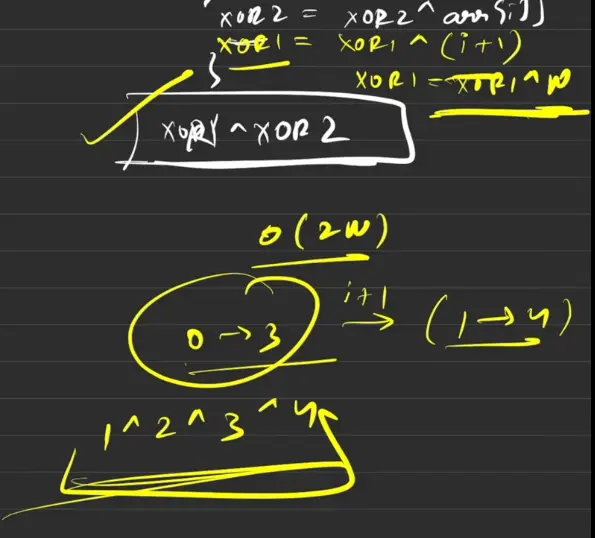 XOR2 = XOR2 ^ arr[i]
XOR1 = XOR1 ^ (i+1)
}
XOR1 = XOR1 ^ N
XOR1 ^ XOR2
O(2N)
0 → 3
i+1
→
(1 → 4)
1 ^ 2 ^ 3 ^ 4